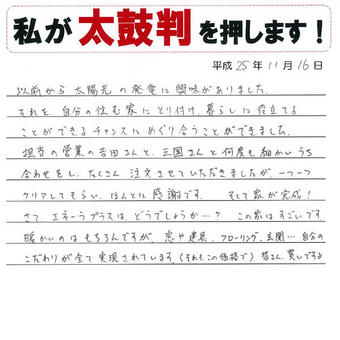 私が太鼓判を押します！
平成25年11月16日
以前から太陽光の発電に興味がありました。
それを、自分の住む家にとり付け、暮らしに役立てる
ことができるチャンスにめぐり合うことができました。
担当の営業の吉田さんと、三国さんと何度も細かいうち
合わせをし、たくさん注文させていただきましたが、一つ一つ
クリアしてもらい、ほんとに感謝です。 そして家が完成！
さて、エネーラプラスは、どうでしょうか…？ この家はすごいです
暖かいのはもちろんですが、窓や建具、フローリング、玄関…自分の
こだわりが全て実現されています（それもこの価格で）皆さん、買いですよ